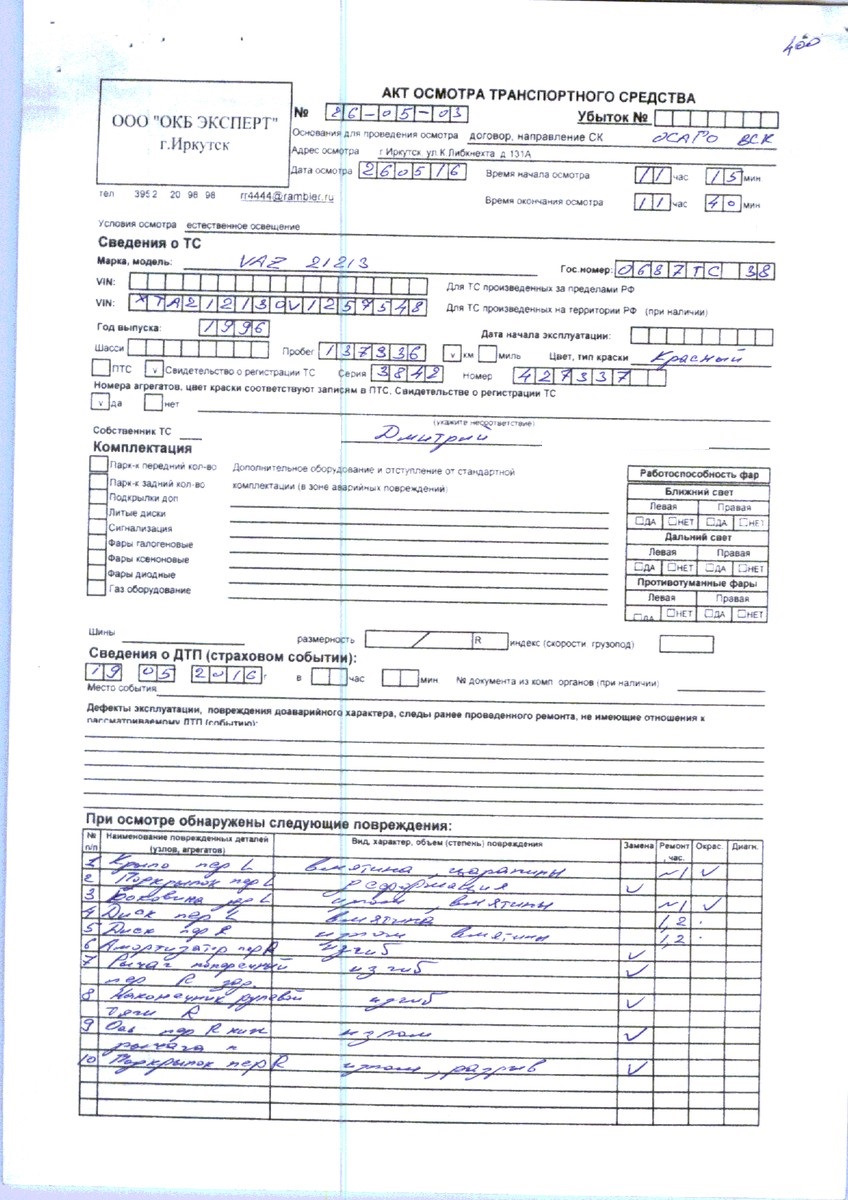 400
АКТ ОСМОТРА ТРАНСПОРТНОГО СРЕДСТВА
ООО "ОКБ ЭКСПЕРТ"
г.Иркутск
№ 26-05-03 Убыток №
Основания для проведения осмотра договор, направление СК ОСАГО ВСК
Адрес осмотра г Иркутск ул К.Либкнехта д 131А
Дата осмотра 260516 Время начала осмотра 11 час 15 мин
тел 3952 20 98 98 rr4444@rambler.ru
Время окончания осмотра 11 час 40 мин
Условия осмотра естественное освещение
Сведения о ТС
Марка, модель: VAZ 21213 Гос.номер: О687ТС 38
VIN: Для ТС произведенных за пределами РФ
VIN: XTA212130V1257548 Для ТС произведенных на территории РФ (при наличии)
Год выпуска: 1996 Дата начала эксплуатации:
Шасси Пробег 137336 v км миль Цвет, тип краски Красный
ПТС v Свидетельство о регистрации ТС Серия 3842 Номер 427337
Номера агрегатов, цвет краски соответствуют записям в ПТС, Свидетельстве о регистрации ТС
v да нет
(укажите несоответствие)
Собственник ТС Дмитрий
Комплектация
Парк-к передний кол-во Дополнительное оборудование и отступление от стандартной
Парк-к задний кол-во комплектации (в зоне аварийных повреждений)
Подкрылки доп
Литые диски
Сигнализация
Фары галогеновые
Фары ксеноновые
Фары диодные
Газ оборудование
Работоспособность фар
Ближний свет
Левая Правая
ДА НЕТ ДА НЕТ
Дальний свет
Левая Правая
ДА НЕТ ДА НЕТ
Противотуманные фары
Левая Правая
ДА НЕТ ДА НЕТ
Шины размерность / R индекс (скорости грузопод)
Сведения о ДТП (страховом событии):
19 05 2016 г в час мин № документа из комп органов (при наличии)
Место события
Дефекты эксплуатации, повреждения доаварийного характера, следы ранее проведенного ремонта, не имеющие отношения к
рассматриваемому ДТП (событию):
При осмотре обнаружены следующие повреждения:
№ п/п Наименование поврежденных деталей (узлов, агрегатов) Вид, характер, объем (степень) повреждения Замена Ремонт, час. Окрас. Диагн.
1 Крыло пер L вмятина, царапины ~1 ✓
2 Подкрылок пер L деформация ✓
3 Боковина L излом, вмятины ~1 ✓
4 Диск пер L вмятина 1,2
5 Диск пер R излом вмятины 1,2
6 Амортизатор пер R изгиб ✓
7 Рычаг поперечный изгиб ✓
пер R
8 Наконечник рулевой изгиб ✓
тяги R
9 Ось пер R ниж излом ✓
рычага
10 Подкрылок пер R излом, разрыв ✓